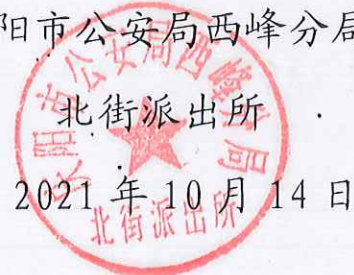 阳市公安局西峰分局
北街派出所
2021年10月14日
庆阳市公安局西峰分局
北街派出所